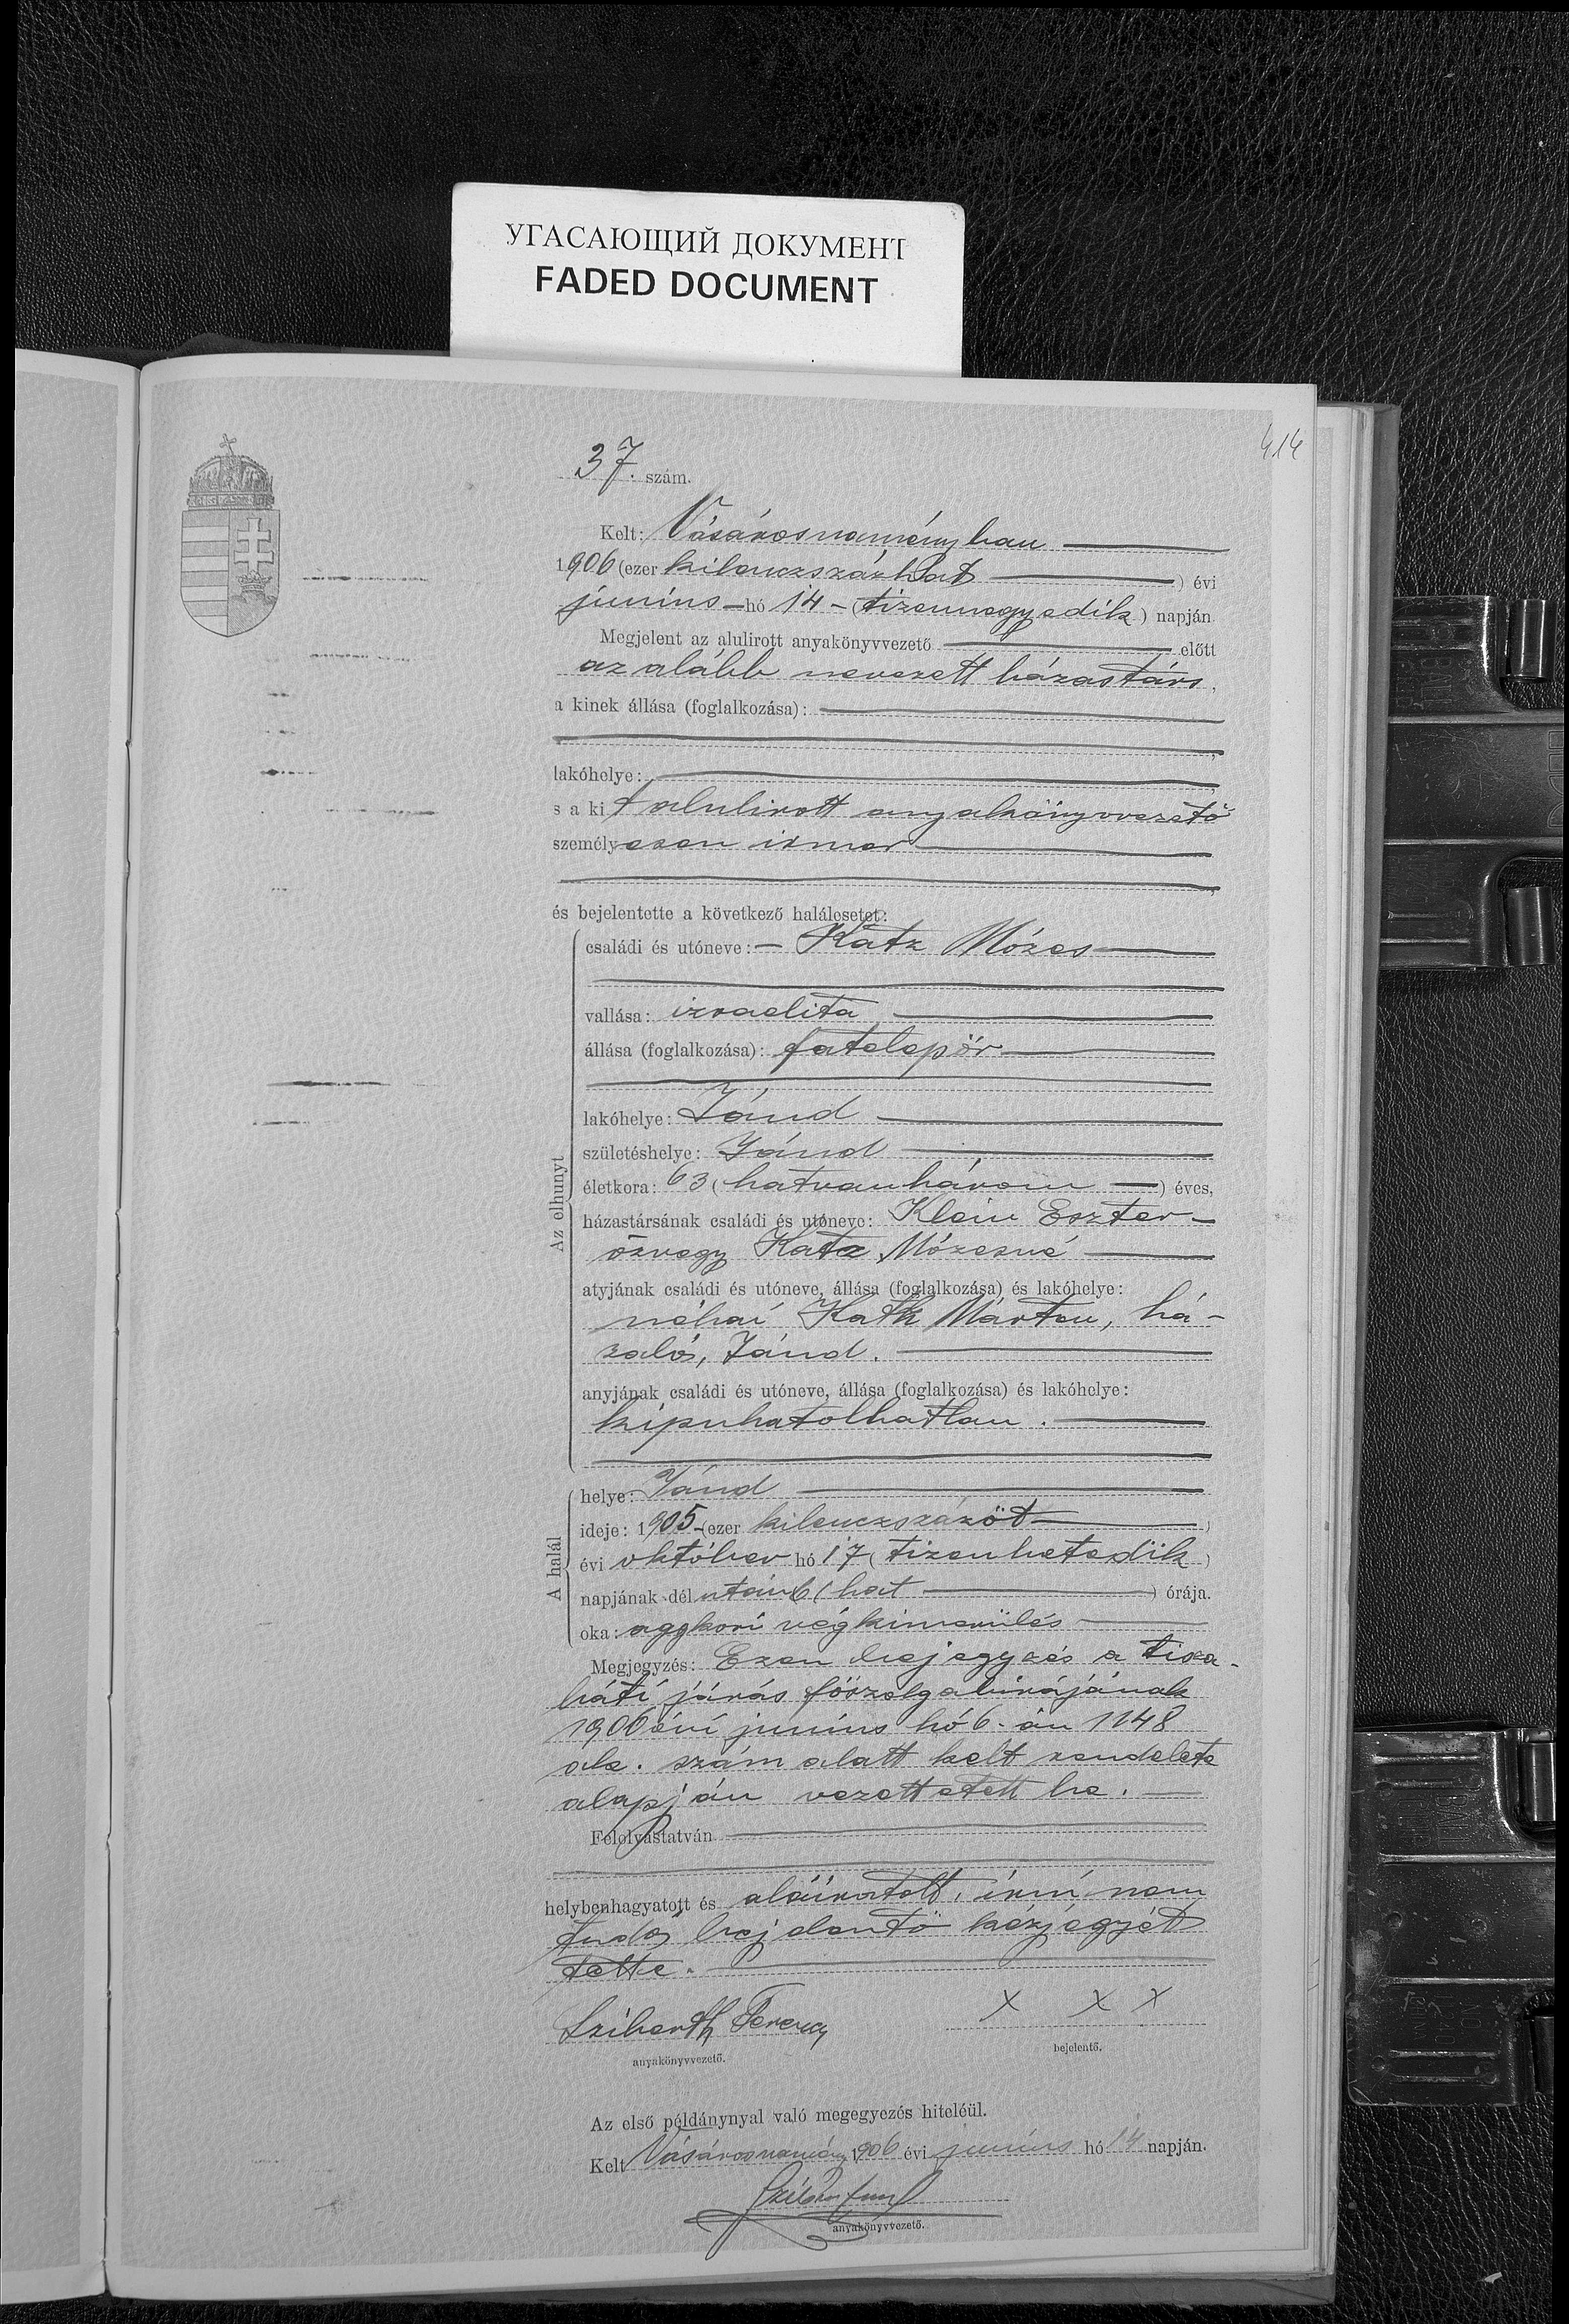 УГАСАЮЩИЙ ДОКУМЕНТ
FADED DOCUMENT
414
37. szám.
Kelt: Vásárosnaményban
1906 (ezer kilenczszázhat ) évi
junius hó 14 (tizennegyedik) napján
Megjelent az alulirott anyakönyvvezető előtt
az alább nevezett házastárs,
a kinek állása (foglalkozása):
lakóhelye:
s a kit alulirott anyakönyvvezető
személyesen ismer
és bejelentette a következő halálesetet:
családi és utóneve: Katz Mózes
vallása: izraelita
állása (foglalkozása): fatelepőr
lakóhelye: Jánd
születéshelye: Jánd
életkora: 63 (hatvanhárom ) éves,
Az elhunyt
házastársának családi és utóneve: Klein Eszter
özvegy Katz Mózesné
atyjának családi és utóneve, állása (foglalkozása) és lakóhelye:
néhai Katk Márton, há-
zaló, Jánd.
anyjának családi és utóneve, állása (foglalkozása) és lakóhelye:
kipuhatolhatlan.
helye: Jánd
ideje: 1905 (ezer kilenczszázöt )
évi október hó 17 (tizenhetedik )
A halál
napjának dél után 6 (hat ) órája.
oka: aggkori végkimerülés
Megjegyzés: Ezen bejegyzés a tisza-
háti járás főszolgabirájának
1906 évi junius hó 6-án 1148
ak. szám alatt kelt rendelete
alapján vezettetett be.
Felolvastatván
helybenhagyatott és aláiratott, irni nem
tudó bejelentő kézjegyét
tette.
X X X
Sziberth Ferencz
anyakönyvvezető.
bejelentő.
Az első példánynyal való megegyezés hiteléül.
Kelt Vásárosnamény 1906 évi junius hó 14 napján.
anyakönyvvezető.